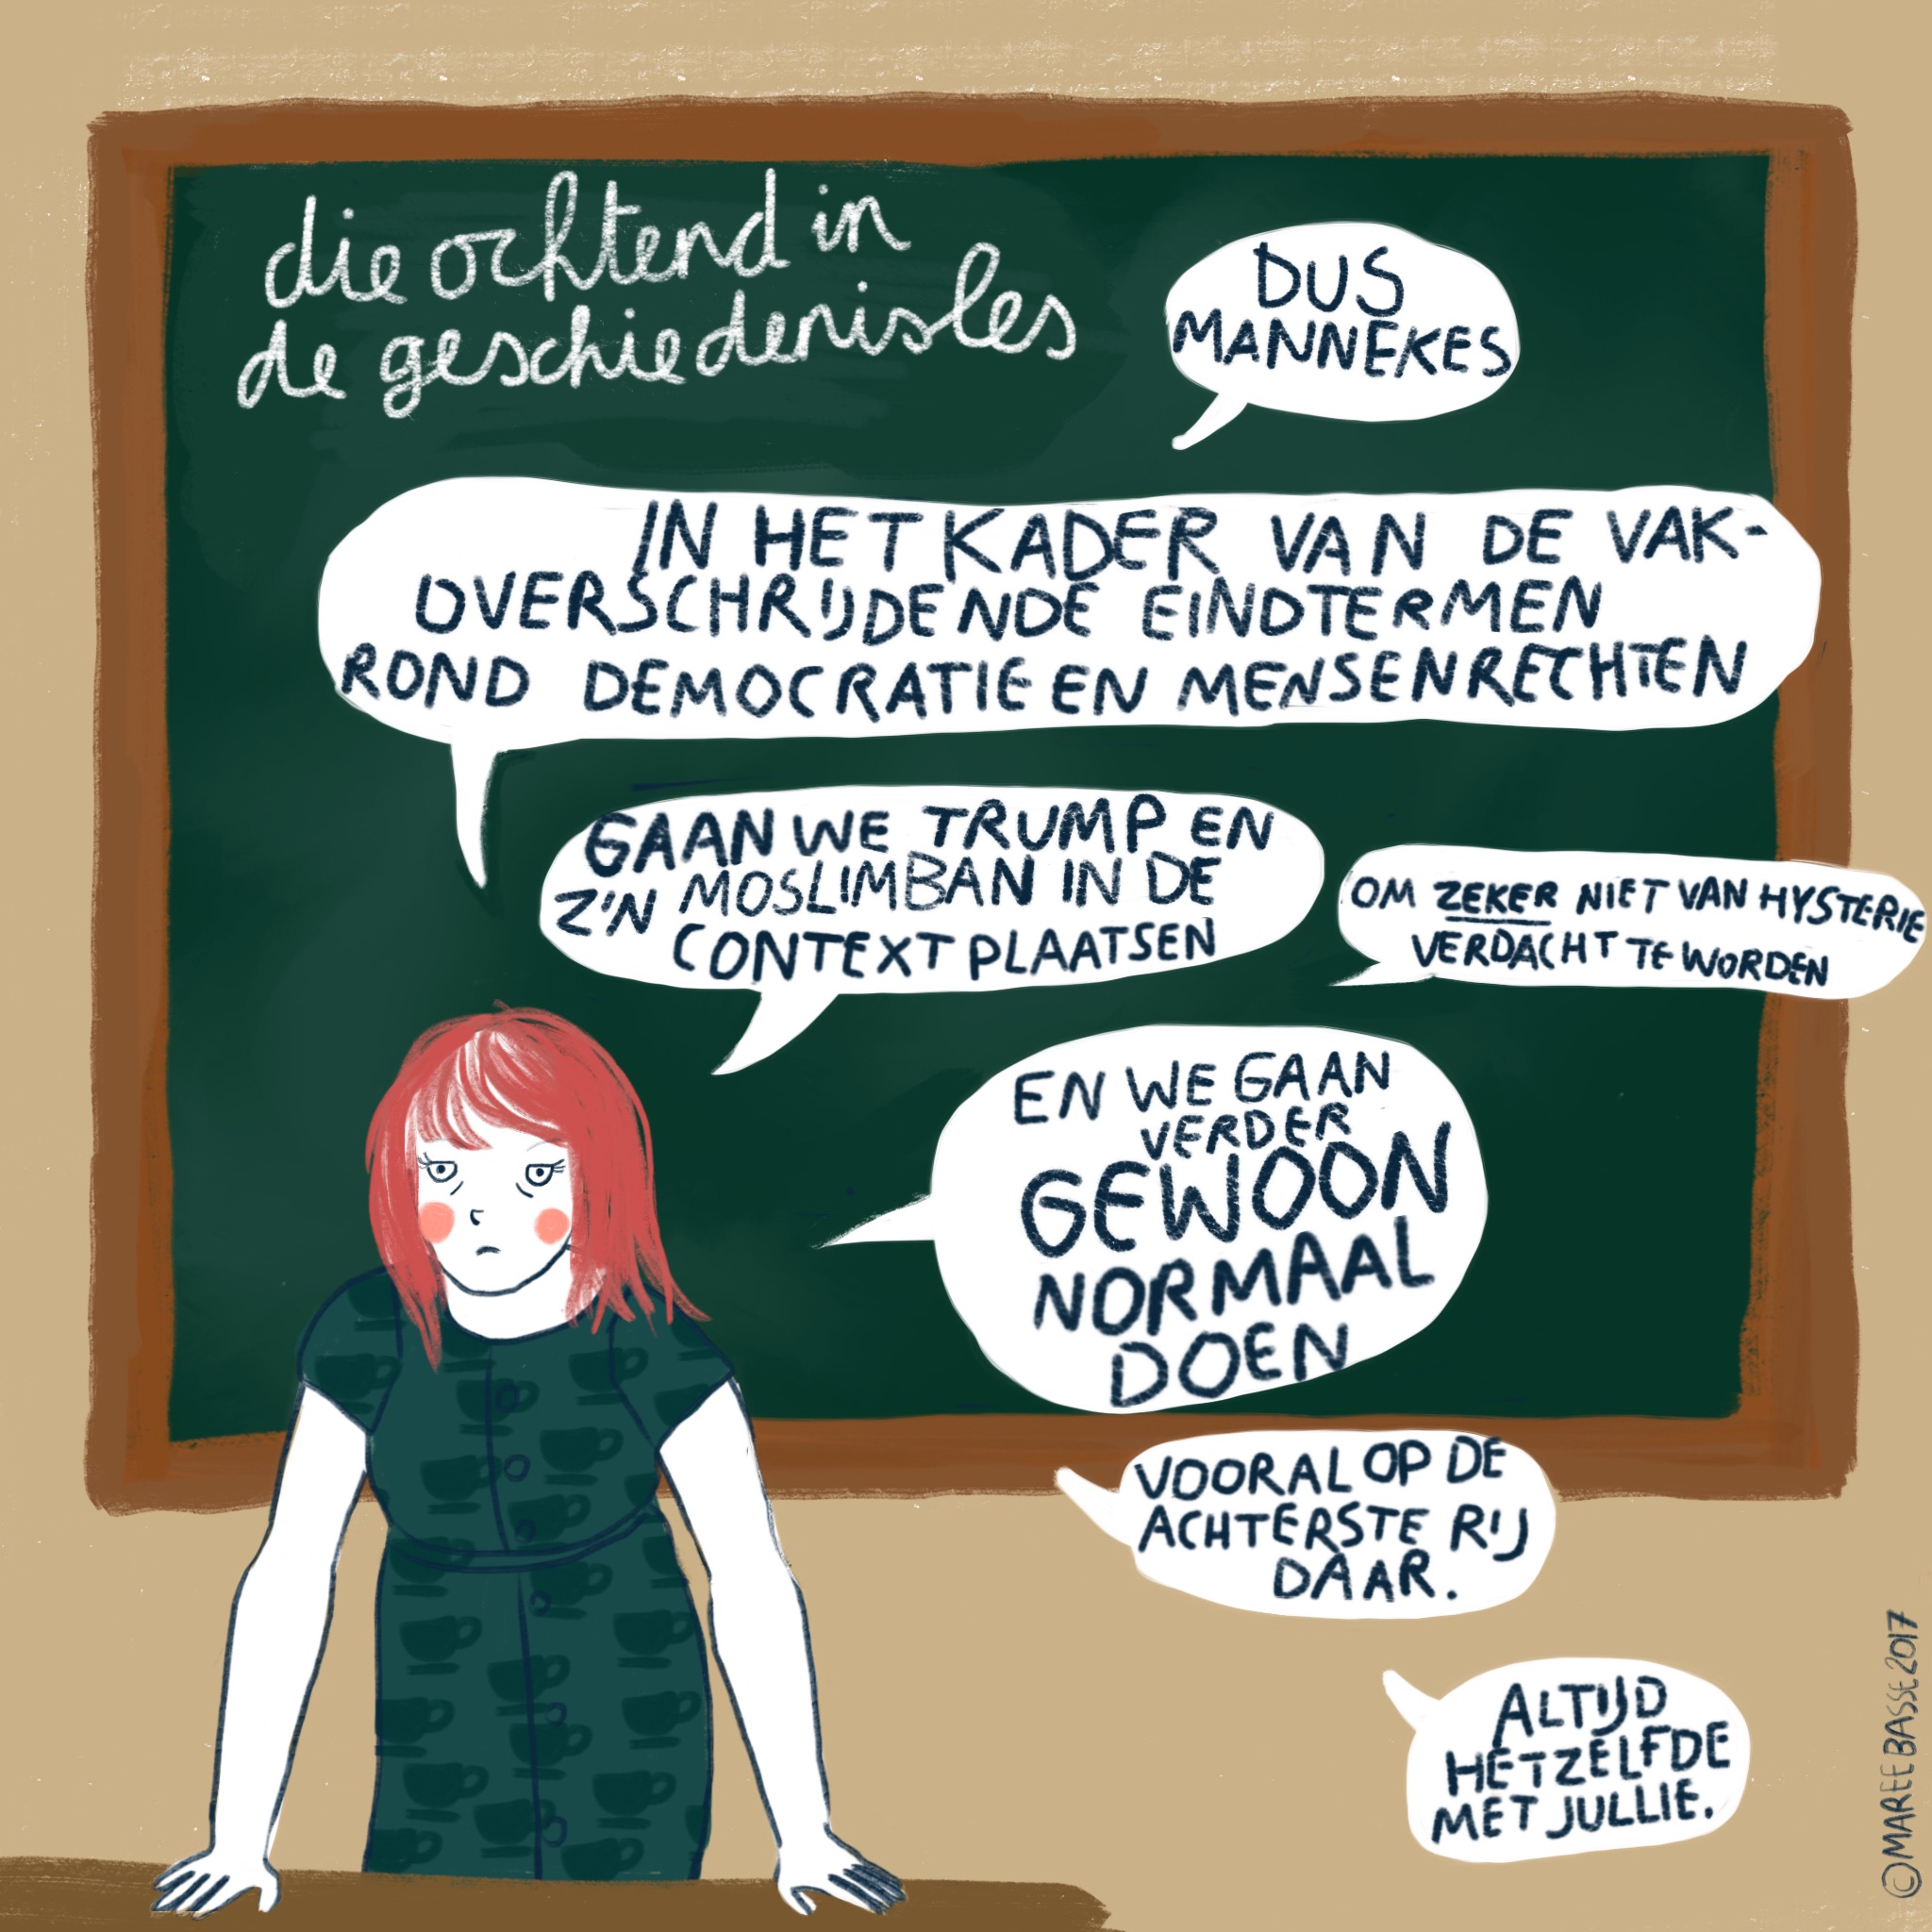 die ochtend in
de geschiedenisles
DUS
MANNEKES
IN HET KADER VAN DE VAK-
OVERSCHRIJDENDE EINDTERMEN
ROND DEMOCRATIE EN MENSENRECHTEN
GAAN WE TRUMP EN
Z'N MOSLIMBAN IN DE
CONTEXT PLAATSEN
OM ZEKER NIET VAN HYSTERIE
VERDACHT TE WORDEN
EN WE GAAN
VERDER
GEWOON
NORMAAL
DOEN
VOORAL OP DE
ACHTERSTE RIJ
DAAR.
ALTIJD
HETZELFDE
MET JULLIE.
©MAREEBASSE2017